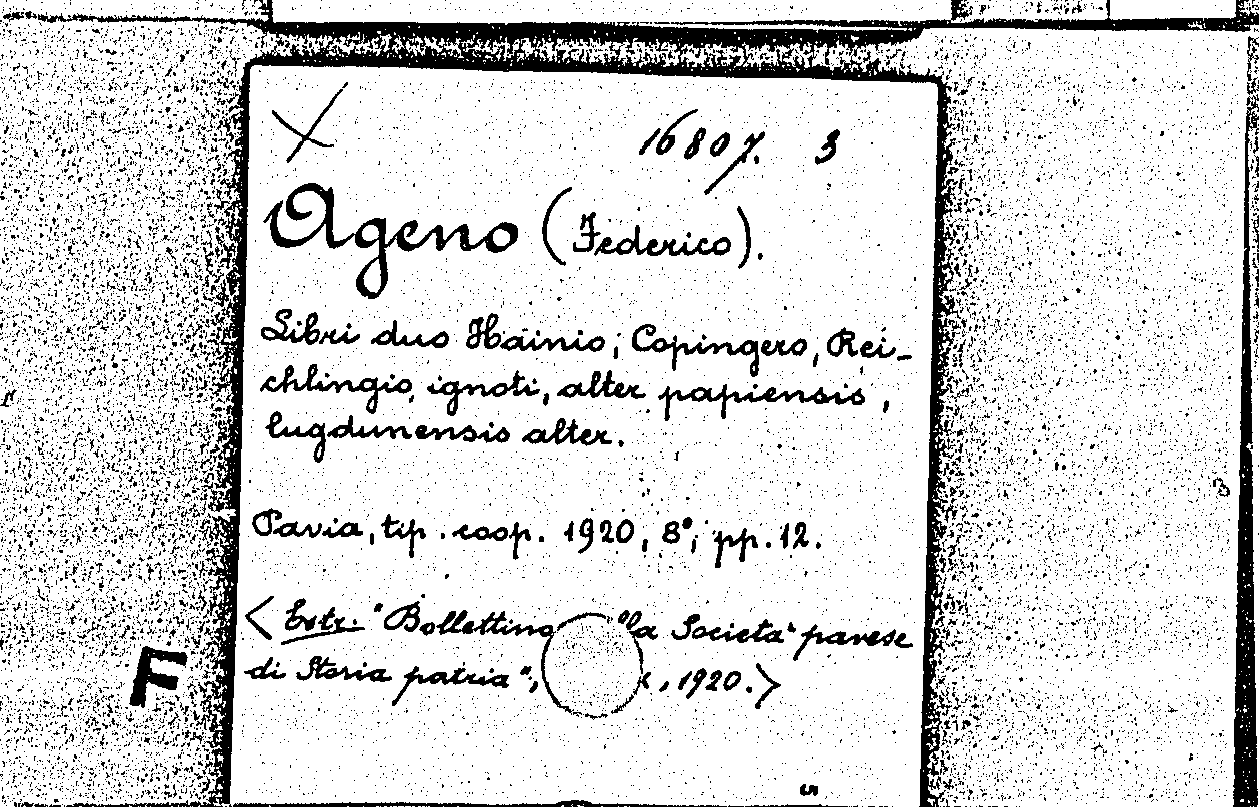 16807. 3
Ageno (Federico).
Libri duo Hainio, Copingero, Rei-
chlingio, ignoti, alter papiensis,
lugdunensis alter.
Pavia, tip. coop. 1920, 8°, pp. 12.
<Estr. "Bollettino la Società pavese
di Storia patria", , 1920.>
F